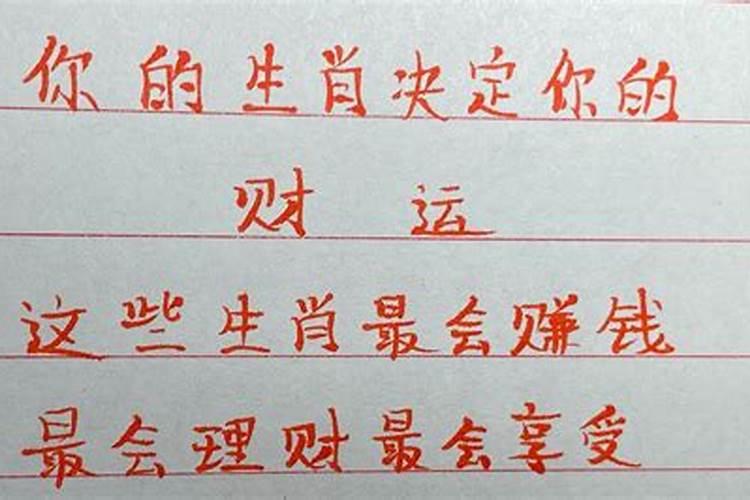 你的生肖决定你的
财运
这些生肖最会赚钱
最会理财最会享受